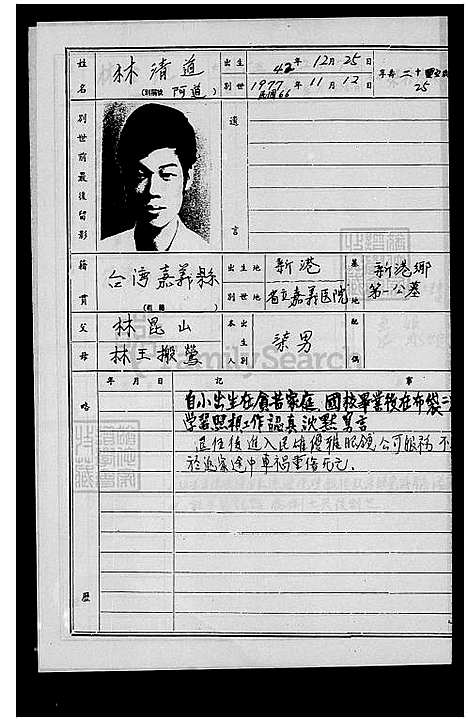 姓名 林清道 (別稱號 阿道) 出生 42年 12月 25日 享壽 二十
別世 1977年 11月 12日 25
民國66
別世前最後留影 遺言
籍貫 台湾嘉義縣 出生地 新港 墓地 新港鄉
別世地 省立嘉義医院 第一公墓
父 林昆山 本人出生別 柒男 配偶
母 林王搬鶯
FamilySearch
略歷 年月日 記事
自小出生在貧苦家庭 國校畢業後在布袋
學習照相工作認真沈默寡言
退伍後進入民雄優雅眼鏡公司服務 不
於返家途中車祸重傷死亡.